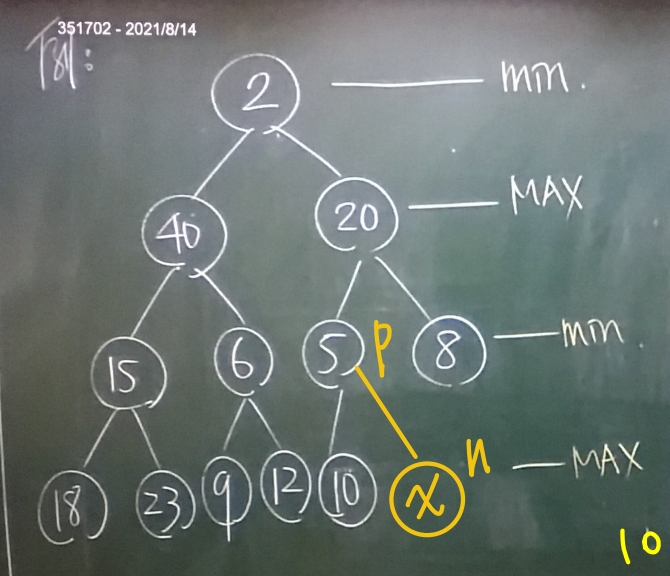 351702 - 2021/8/14
2 min.
40 20 MAX
15 6 5 p 8 min.
18 23 9 12 10 x n MAX
10